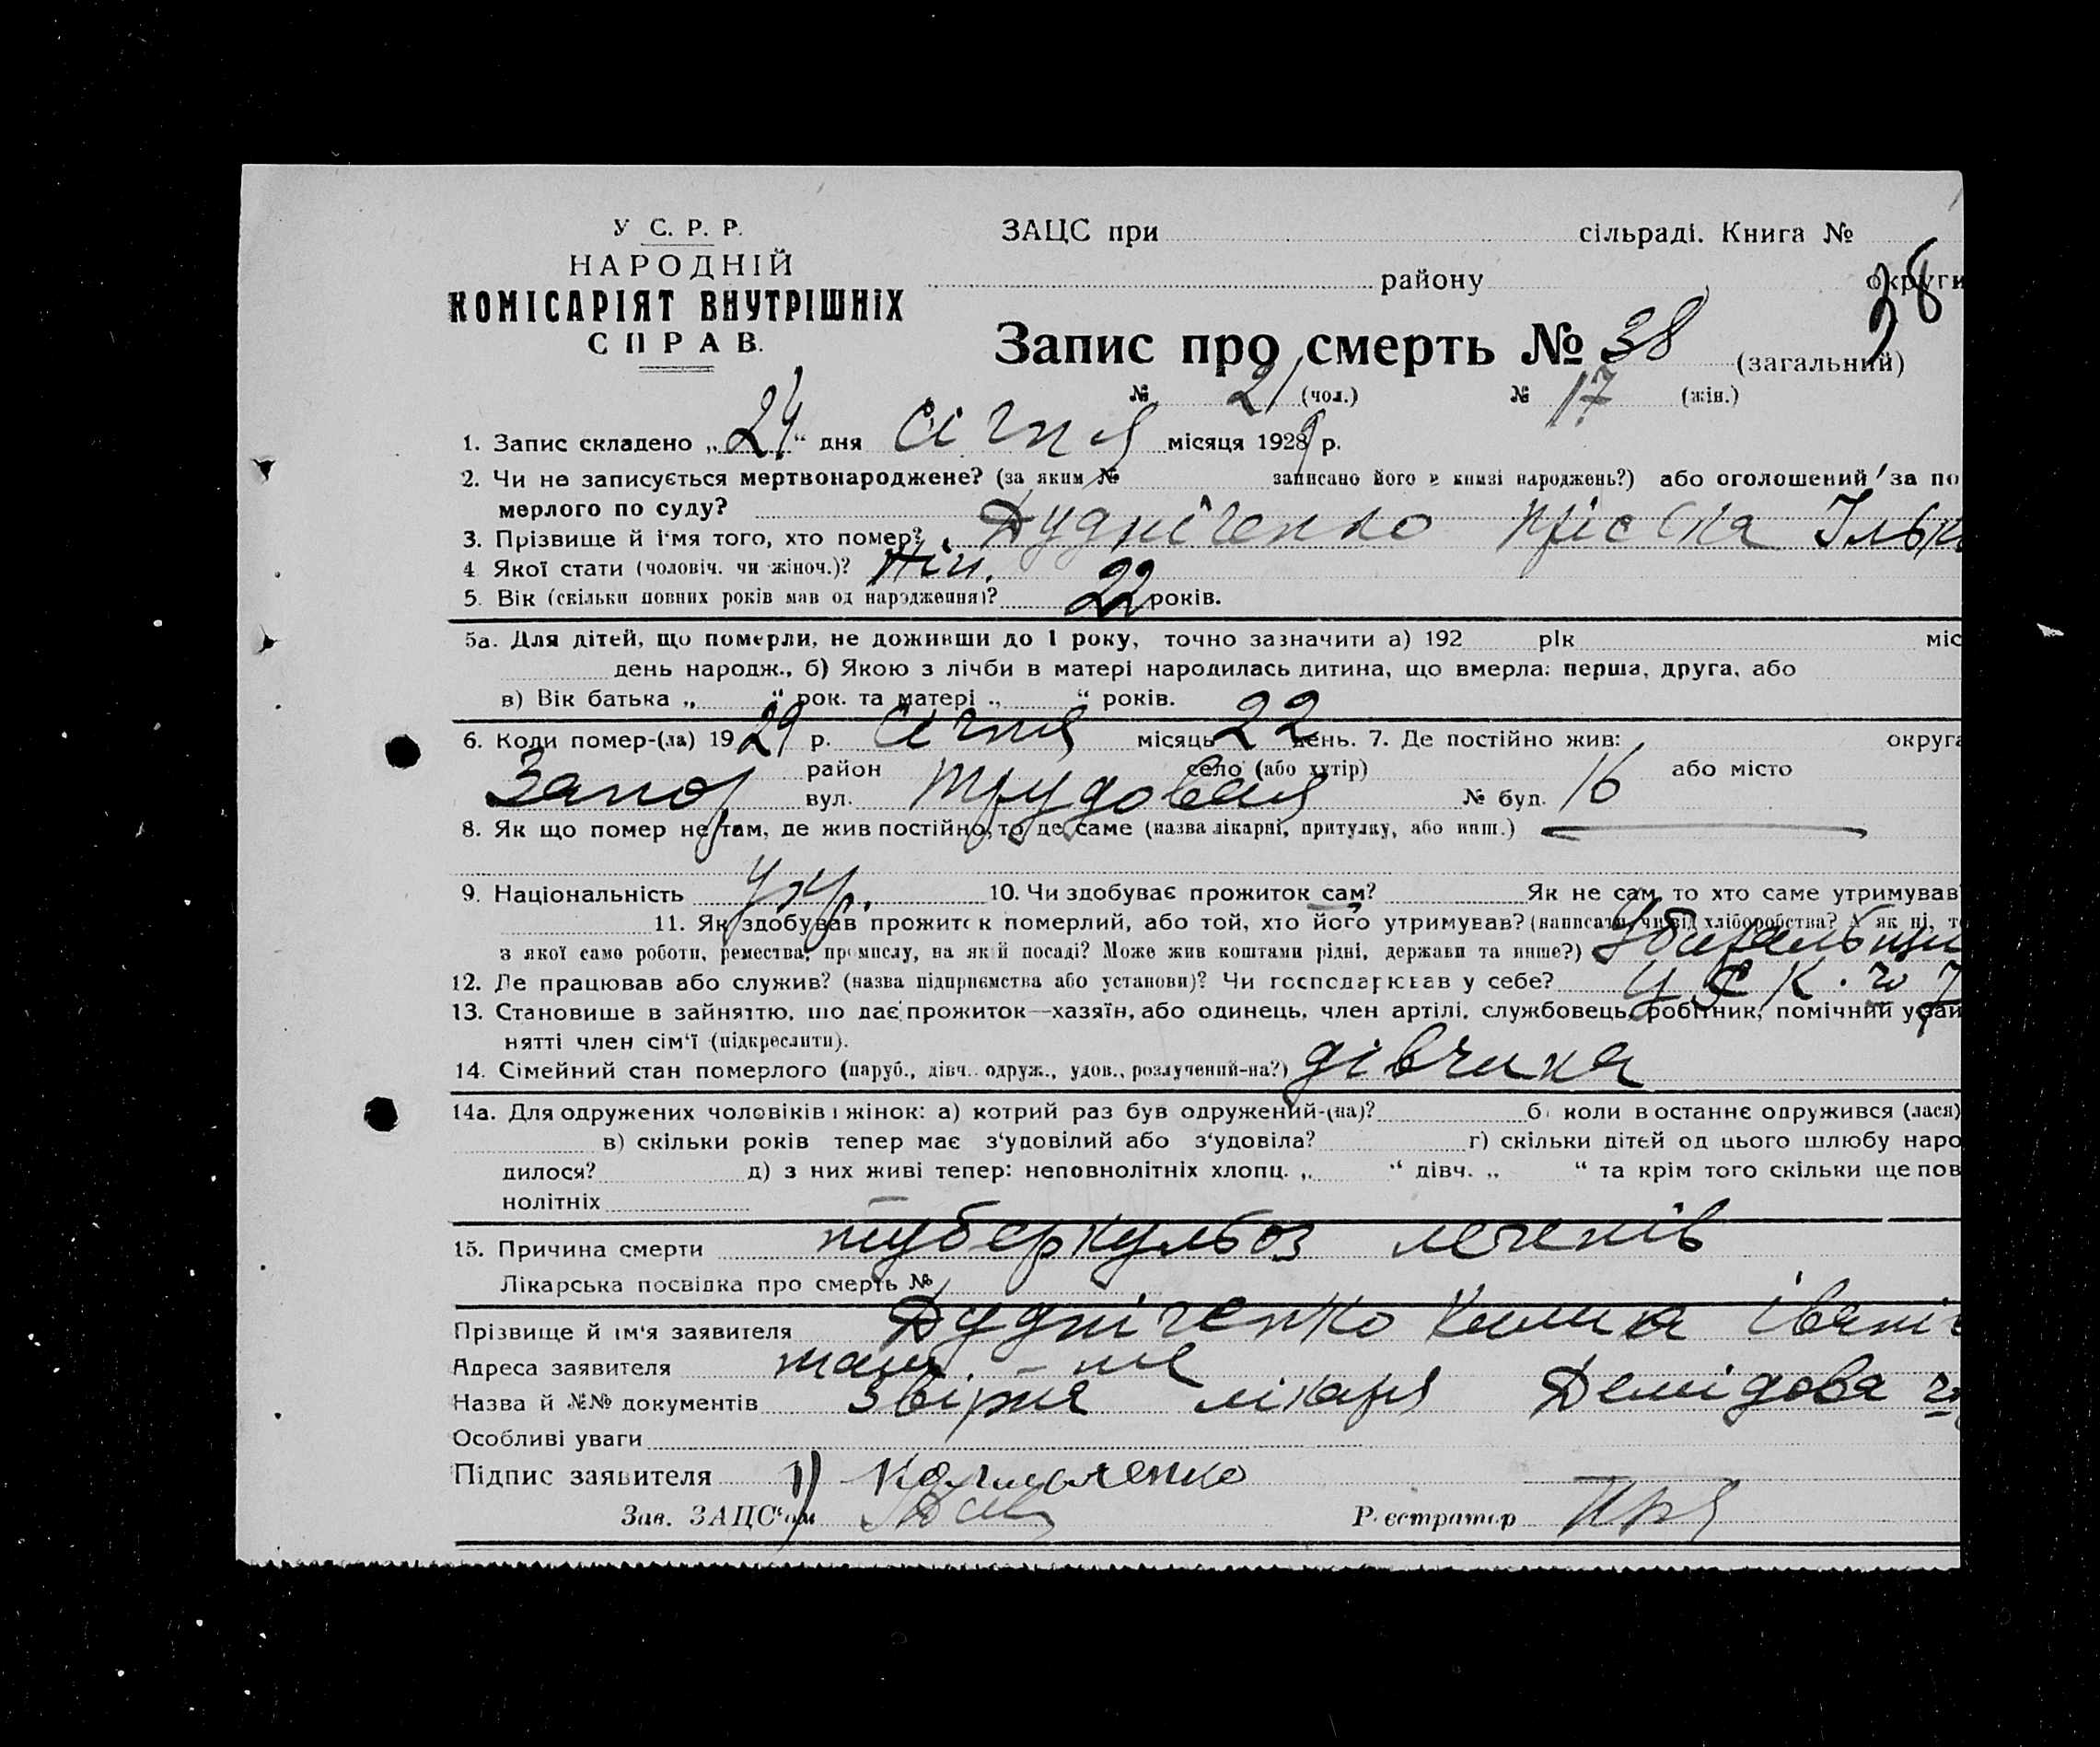 У С. Р. Р.
НАРОДНІЙ
КОМІСАРІЯТ ВНУТРІШНІХ
СПРАВ.
ЗАЦС при сільраді. Книга №
району округи
38
Запис про смерть № 38 (загальний)
№ 21 (чол.) № 17 (жін.)
1. Запис складено „24“ дня Січня місяця 1929 р.
2. Чи не записується мертвонароджене? (за яким № записано його в книзі народжень?) або оголошений за по
мерлого по суду?
3. Прізвище й ім'я того, хто помер? Дудніченко Пріська Ільк
4 Якої стати (чоловіч. чи жіноч.)? Жін.
5. Вік (скільки повних років мав од народження)? 22 років.
5а. Для дітей, що померли, не доживши до 1 року, точно зазначити а) 192 рік міс
день народж., б) Якою з лічби в матері народилась дитина, що вмерла: перша, друга, або
в) Вік батька „ “ рок. та матері „ “ років.
6. Коли помер-(ла) 1929 р. Січня місяць 22 день. 7. Де постійно жив: округа
район село (або хутір) або місто
Запор вул. Трудовая № буд. 16
8. Як що помер не там, де жив постійно, то де саме (назва лікарні, притулку, або инш.) —
9. Національність Укр. 10. Чи здобуває прожиток сам? Як не сам, то хто саме утримував
11. Як здобував прожиток померлий, або той, хто його утримував? (написати, чи від хліборобства? А як ні, то
з якої само роботи, ремества, промислу, на якій посаді? Може жив коштами рідні, держави та инше?) Убиральщи
12. Де працював або служив? (назва підприємства або установи)? Чи господарював у себе?
13. Становище в зайняттю, що дає прожиток—хазяїн, або одинець, член артілі, службовець, робітник, помічний у зай
нятті член сім'ї (підкреслити).
14. Сімейний стан померлого (паруб., дівч. одруж., удов., розлучений-на?) дівчина
14а. Для одружених чоловіків і жінок: а) котрий раз був одружений-(на)? б) коли в останнє одружився (лася)
в) скільки років тепер має з'удовілий або з'удовіла? г) скільки дітей од цього шлюбу наро
дилося? д) з них живі тепер: неповнолітніх хлопц. „ “ дівч. „ “ та крім того скільки ще пов
нолітніх
15. Причина смерти туберкульоз легенів
Лікарська посвідка про смерть №
Прізвище й ім'я заявителя Дудніченко
Адреса заявителя там - же
Назва й №№ документів лікаря Демідова
Особливі уваги
Підпис заявителя
Зав. ЗАЦС'ом Реєстратор